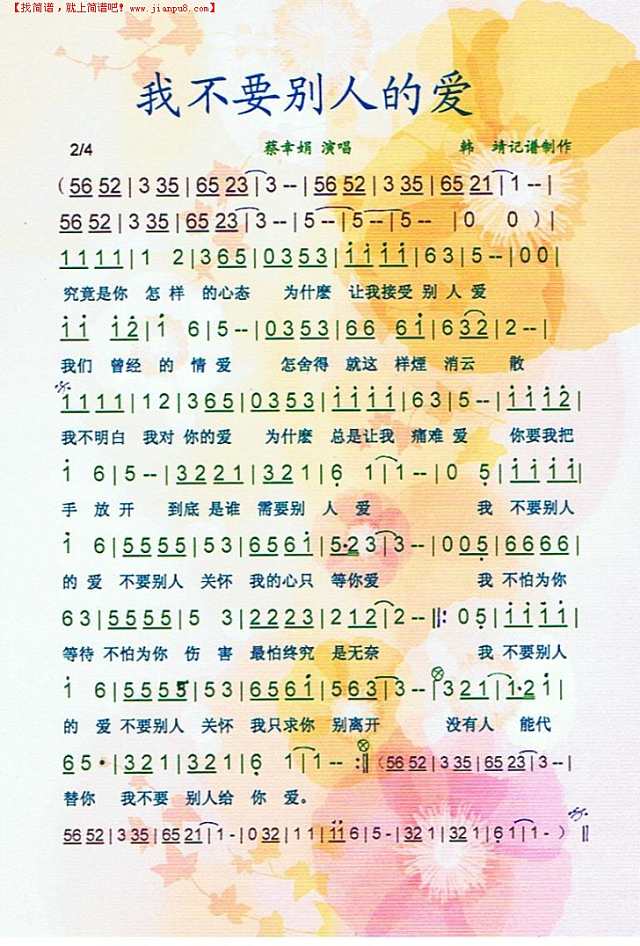 【找简谱，就上简谱吧! www.jianpu8.com】
我不要别人的爱
2/4 蔡幸娟 演唱 韩 靖记谱制作
( 56 52 | 3 35 | 65 23 | 3 -- | 56 52 | 3 35 | 65 21 | 1 -- |
56 52 | 3 35 | 65 23 | 3 -- | 5 -- | 5 -- | 5 -- | 0 0 ) |
1 1 1 1 | 1 2 | 3 6 5 | 0 3 5 3 | i i i i | 6 3 | 5 -- | 0 0 |
究竟是你 怎 样 的心态 为什麽 让我接受 别 人 爱
i i i 2̇ | i 6 | 5 -- | 0 3 5 3 | 6 6 6 i | 6 3 2 | 2 -- |
我们 曾经 的 情 爱 怎舍得 就这 样煙 消云 散
1 1 1 1 | 1 2 | 3 6 5 | 0 3 5 3 | i i i i | 6 3 | 5 -- | i i i 2̇ |
我不明白 我对 你的爱 为什麽 总是让我 痛难 爱 你要我把
i 6 | 5 -- | 3 2 2 1 | 3 2 1 | 6̣ 1 | 1 -- | 0 5̣ | i i i i |
手 放 开 到底 是谁 需要别 人 爱 我 不要别人
i 6 | 5 5 5 5 | 5 3 | 6 5 6 i | 5·2 3 | 3 -- | 0 0 5̣ | 6 6 6 6 |
的 爱 不要别人 关怀 我的心只 等你爱 我 不怕为你
6 3 | 5 5 5 5 | 5 3 | 2 2 2 3 | 2 1 2 | 2 -- ‖: 0 5̣ | i i i i |
等待 不怕为你 伤 害 最怕终究 是无奈 我 不要别人
i 6 | 5 5 5 5 | 5 3 | 6 5 6 i | 5 6 3 | 3 -- | 3 2 1 | 1·2 i |
的 爱 不要别人 关怀 我只求你 别离开 没有人 能代
6 5 · | 3 2 1 | 3 2 1 | 6̣ 1 | 1 -- :‖ (56 52 | 3 35 | 65 23 | 3 -- |
替你 我不要 别人给 你 爱。
56 52 | 3 35 | 65 21 | 1 - | 0 32 | 1 1 | i i 6 | 5 - | 32 1 | 32 1 | 6̣ 1 | 1 - ) ‖